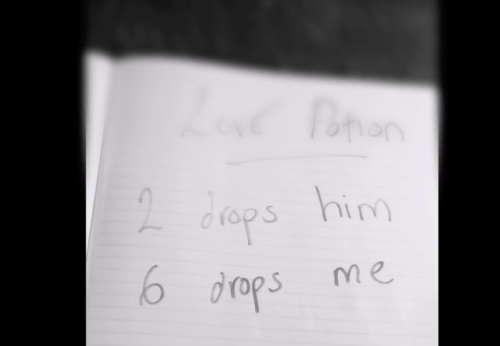 Love Potion
2 drops him
6 drops me